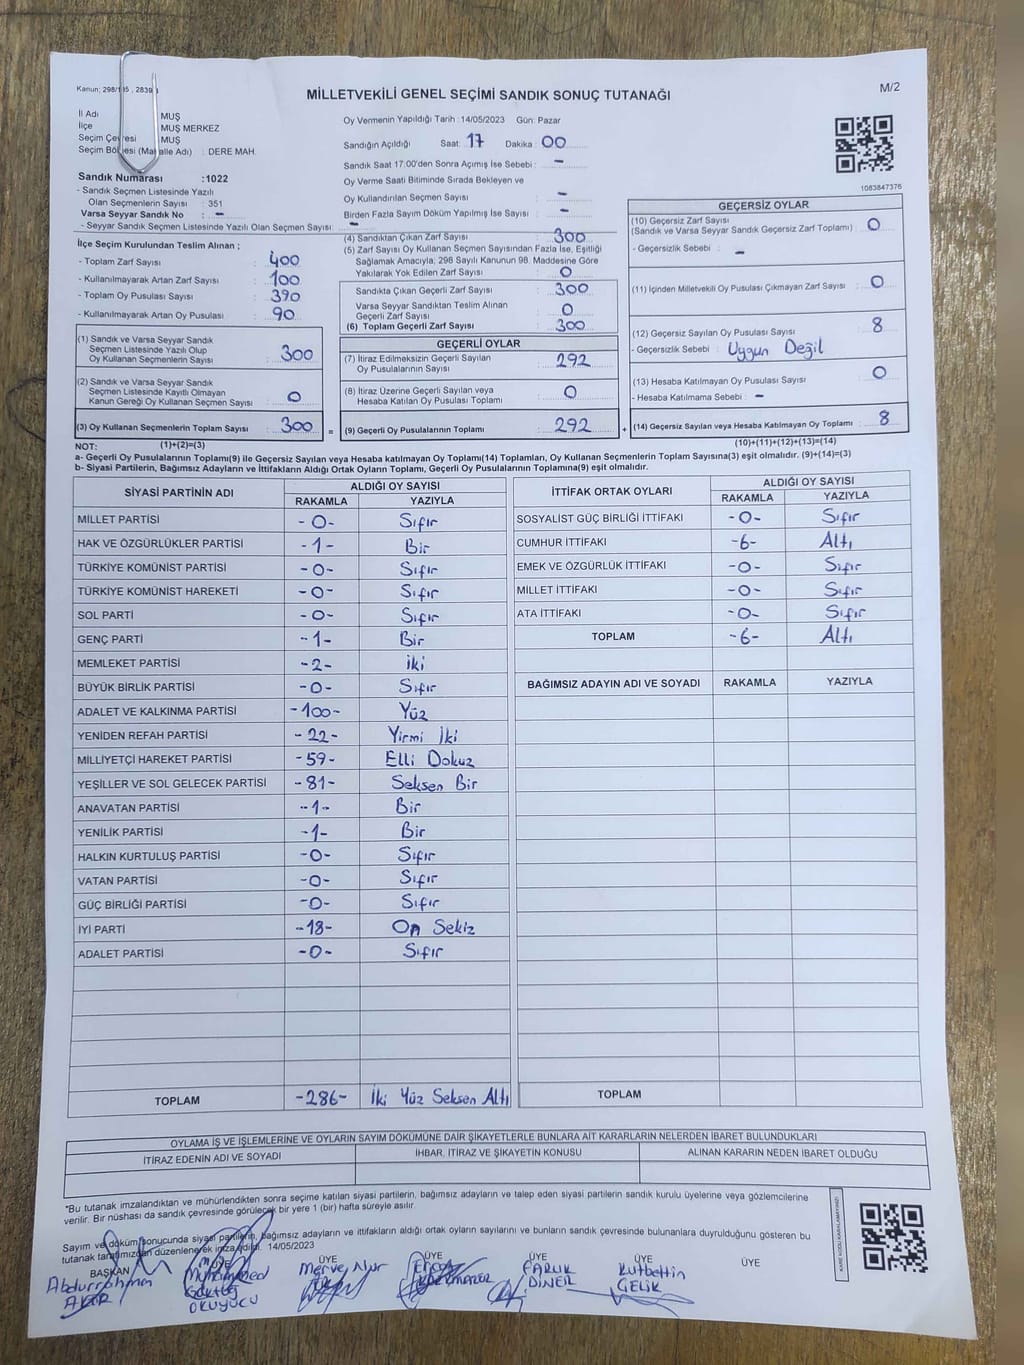 Kanun; 298/105 , 2839
MİLLETVEKİLİ GENEL SEÇİMİ SANDIK SONUÇ TUTANAĞI
M/2
İl Adı MUŞ
İlçe MUŞ MERKEZ
Seçim Çevresi MUŞ
Seçim Bölgesi (Mahalle Adı) : DERE MAH.
Sandık Numarası :1022
- Sandık Seçmen Listesinde Yazılı
Olan Seçmenlerin Sayısı : 351
Varsa Seyyar Sandık No : -
- Seyyar Sandık Seçmen Listesinde Yazılı Olan Seçmen Sayısı : -
Oy Vermenin Yapıldığı Tarih : 14/05/2023 Gün: Pazar
Sandığın Açıldığı Saat: 17 Dakika : 00
Sandık Saat 17:00'den Sonra Açımış İse Sebebi : -
Oy Verme Saati Bitiminde Sırada Bekleyen ve
Oy Kullandırılan Seçmen Sayısı : -
Birden Fazla Sayım Döküm Yapılmış İse Sayısı : -
1083847376
İlçe Seçim Kurulundan Teslim Alınan ;
- Toplam Zarf Sayısı : 400
- Kullanılmayarak Artan Zarf Sayısı : 100
- Toplam Oy Pusulası Sayısı : 390
- Kullanılmayarak Artan Oy Pusulası : 90
(1) Sandık ve Varsa Seyyar Sandık
Seçmen Listesinde Yazılı Olup
Oy Kullanan Seçmenlerin Sayısı : 300
(2) Sandık ve Varsa Seyyar Sandık
Seçmen Listesinde Kayıtlı Olmayan
Kanun Gereği Oy Kullanan Seçmen Sayısı : 0
(3) Oy Kullanan Seçmenlerin Toplam Sayısı : 300 =
(4) Sandıktan Çıkan Zarf Sayısı : 300
(5) Zarf Sayısı Oy Kullanan Seçmen Sayısından Fazla İse, Eşitliği
Sağlamak Amacıyla; 298 Sayılı Kanunun 98. Maddesine Göre
Yakılarak Yok Edilen Zarf Sayısı : 0
Sandıkta Çıkan Geçerli Zarf Sayısı : 300
Varsa Seyyar Sandıktan Teslim Alınan
Geçerli Zarf Sayısı : 0
(6) Toplam Geçerli Zarf Sayısı : 300
GEÇERLİ OYLAR
(7) İtiraz Edilmeksizin Geçerli Sayılan
Oy Pusulalarının Sayısı : 292
(8) İtiraz Üzerine Geçerli Sayılan veya
Hesaba Katılan Oy Pusulası Toplamı : 0
(9) Geçerli Oy Pusulalarının Toplamı : 292 +
GEÇERSİZ OYLAR
(10) Geçersiz Zarf Sayısı
(Sandık ve Varsa Seyyar Sandık Geçersiz Zarf Toplamı) : 0
- Geçersizlik Sebebi : -
(11) İçinden Milletvekili Oy Pusulası Çıkmayan Zarf Sayısı : 0
(12) Geçersiz Sayılan Oy Pusulası Sayısı : 8
- Geçersizlik Sebebi : Uygun Değil
(13) Hesaba Katılmayan Oy Pusulası Sayısı : 0
- Hesaba Katılmama Sebebi : -
(14) Geçersiz Sayılan veya Hesaba Katılmayan Oy Toplamı : 8
NOT: (1)+(2)=(3) (10)+(11)+(12)+(13)=(14)
a- Geçerli Oy Pusulalarının Toplamı(9) ile Geçersiz Sayılan veya Hesaba katılmayan Oy Toplamı(14) Toplamları, Oy Kullanan Seçmenlerin Toplam Sayısına(3) eşit olmalıdır. (9)+(14)=(3)
b- Siyasi Partilerin, Bağımsız Adayların ve İttifakların Aldığı Ortak Oyların Toplamı, Geçerli Oy Pusulalarının Toplamına(9) eşit olmalıdır.
SİYASİ PARTİNİN ADI ALDIĞI OY SAYISI
RAKAMLA YAZIYLA
MİLLET PARTİSİ -0- Sıfır
HAK VE ÖZGÜRLÜKLER PARTİSİ -1- Bir
TÜRKİYE KOMÜNİST PARTİSİ -0- Sıfır
TÜRKİYE KOMÜNİST HAREKETİ -0- Sıfır
SOL PARTİ -0- Sıfır
GENÇ PARTİ -1- Bir
MEMLEKET PARTİSİ -2- iki
BÜYÜK BİRLİK PARTİSİ -0- Sıfır
ADALET VE KALKINMA PARTİSİ -100- Yüz
YENİDEN REFAH PARTİSİ -22- Yirmi İki
MİLLİYETÇİ HAREKET PARTİSİ -59- Elli Dokuz
YEŞİLLER VE SOL GELECEK PARTİSİ -81- Seksen Bir
ANAVATAN PARTİSİ -1- Bir
YENİLİK PARTİSİ -1- Bir
HALKIN KURTULUŞ PARTİSİ -0- Sıfır
VATAN PARTİSİ -0- Sıfır
GÜÇ BİRLİĞİ PARTİSİ -0- Sıfır
İYİ PARTİ -18- On Sekiz
ADALET PARTİSİ -0- Sıfır
TOPLAM -286- İki Yüz Seksen Altı
İTTİFAK ORTAK OYLARI ALDIĞI OY SAYISI
RAKAMLA YAZIYLA
SOSYALİST GÜÇ BİRLİĞİ İTTİFAKI -0- Sıfır
CUMHUR İTTİFAKI -6- Altı
EMEK VE ÖZGÜRLÜK İTTİFAKI -0- Sıfır
MİLLET İTTİFAKI -0- Sıfır
ATA İTTİFAKI -0- Sıfır
TOPLAM -6- Altı
BAĞIMSIZ ADAYIN ADI VE SOYADI RAKAMLA YAZIYLA
TOPLAM
OYLAMA İŞ VE İŞLEMLERİNE VE OYLARIN SAYIM DÖKÜMÜNE DAİR ŞİKAYETLERLE BUNLARA AİT KARARLARIN NELERDEN İBARET BULUNDUKLARI
İTİRAZ EDENİN ADI VE SOYADI İHBAR, İTİRAZ VE ŞİKAYETİN KONUSU ALINAN KARARIN NEDEN İBARET OLDUĞU
"Bu tutanak imzalandıktan ve mühürlendikten sonra seçime katılan siyasi partilerin, bağımsız adayların ve talep eden siyasi partilerin sandık kurulu üyelerine veya gözlemcilerine
verilir. Bir nüshası da sandık çevresinde görülecek bir yere 1 (bir) hafta süreyle asılır.
Sayım ve döküm sonucunda siyasi partilerin, bağımsız adayların ve ittifakların aldığı ortak oyların sayılarını ve bunların sandık çevresinde bulunanlara duyrulduğunu gösteren bu
tutanak tarafımızdan düzenlenerek imza edildi. 14/05/2023
BAŞKAN ÜYE ÜYE ÜYE ÜYE ÜYE ÜYE
Abdurrahman Muhammed Merve Nur FARUK Kutbettin
Göktuğ DİNER ÇELİK
OKUYUCU